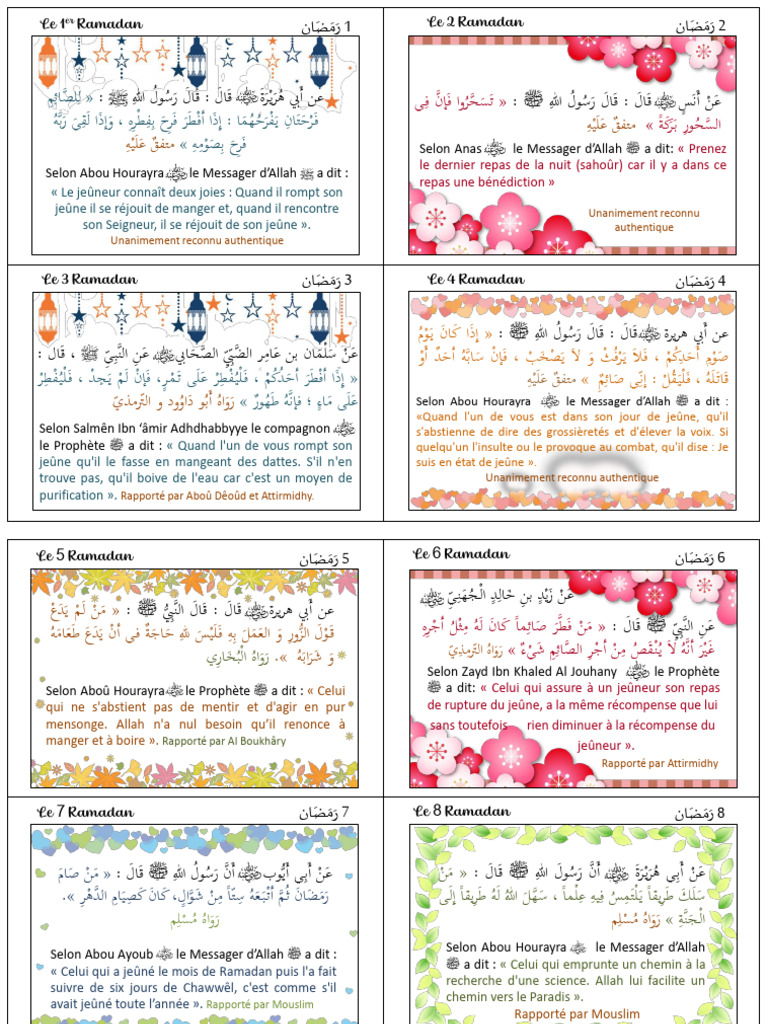 Le 1er Ramadan
1 رَمَضَان
عن أَبِي هُرَيْرَةَ ﵁ قَالَ : قَالَ رَسُولُ اللهِ ﷺ : « لِلصَّائِمِ
فَرْحَتَانِ يَفْرَحُهُمَا : إِذَا أَفْطَرَ فَرِحَ بِفِطْرِهِ ، وَإِذَا لَقِيَ رَبَّهُ
فَرِحَ بِصَوْمِهِ » متفقٌ عَلَيْهِ
Selon Abou Hourayra ﵁ le Messager d’Allah ﷺ a dit :
« Le jeûneur connaît deux joies : Quand il rompt son
jeûne il se réjouit de manger et, quand il rencontre
son Seigneur, il se réjouit de son jeûne ».
Unanimement reconnu authentique
Le 2 Ramadan
2 رَمَضَان
عَنْ أَنَسٍ ﵁ قَالَ : قَالَ رَسُولُ اللهِ ﷺ : « تَسَحَّرُوا فَإِنَّ فِي
السَّحُورِ بَرَكَةً » متفقٌ عَلَيْهِ
Selon Anas ﵁ le Messager d’Allah ﷺ a dit: « Prenez
le dernier repas de la nuit (sahoûr) car il y a dans ce
repas une bénédiction »
Unanimement reconnu
authentique
Le 3 Ramadan
3 رَمَضَان
عَنْ سَلْمَانَ بن عَامِرِ الضَّبِّيِّ الصَّحَابِي ﵁ عَنِ النَّبِيِّ ﷺ ، قَالَ :
« إِذَا أَفْطَرَ أَحَدُكُمْ ، فَلْيُفْطِرْ عَلَى تَمْرٍ، فَإِنْ لَمْ يَجِدْ ، فَلْيُفْطِرْ
عَلَى مَاءٍ ؛ فإِنَّهُ طَهُورٌ » رَوَاهُ أَبُو دَاوُود و التّرمذيّ
Selon Salmên Ibn ‘âmir Adhdhabbyye le compagnon ﵁
le Prophète ﷺ a dit : « Quand l'un de vous rompt son
jeûne qu'il le fasse en mangeant des dattes. S'il n'en
trouve pas, qu'il boive de l'eau car c'est un moyen de
purification ». Rapporté par Aboû Dêoûd et Attirmidhy.
Le 4 Ramadan
4 رَمَضَان
عن أَبي هريرة ﵁ قَالَ : قَالَ رَسُولُ اللهِ ﷺ : « إِذَا كَانَ يَوْمُ
صَوْمِ أَحَدِكُمْ ، فَلاَ يَرْفُثْ وَ لاَ يَصْخَبْ ، فَإِنْ سَابَّهُ أَحَدٌ أَوْ
قَاتَلَهُ ، فَلْيَقُلْ : إِنِّي صَائِمٌ » متفقٌ عَلَيْهِ
Selon Abou Hourayra ﵁ le Messager d’Allah ﷺ a dit :
«Quand l'un de vous est dans son jour de jeûne, qu'il
s'abstienne de dire des grossièretés et d'élever la voix. Si
quelqu'un l'insulte ou le provoque au combat, qu'il dise : Je
suis en état de jeûne ».
Unanimement reconnu authentique
Le 5 Ramadan
5 رَمَضَان
عن أبي هريرة ﵁ قَالَ : قَالَ النَّبِيُّ ﷺ : « مَنْ لَمْ يَدَعْ
قَوْلَ الزُّورِ وَ العَمَلَ بِهِ فَلَيْسَ لِلهِ حَاجَةٌ في أَنْ يَدَعَ طَعَامَهُ
وَ شَرَابَهُ ». رَوَاهُ الْبُخَارِي
Selon Aboû Hourayra ﵁ le Prophète ﷺ a dit : « Celui
qui ne s'abstient pas de mentir et d'agir en pur
mensonge. Allah n'a nul besoin qu’il renonce à
manger et à boire ». Rapporté par Al Boukhâry
Le 6 Ramadan
6 رَمَضَان
عَنْ زَيْدِ بنِ خَالِدٍ الْجُهَنِيِّ ﵁
عَنِ النَّبِيِّ ﷺ قَالَ : « مَنْ فَطَّرَ صَائِماً كَانَ لَهُ مِثْلُ أَجْرِهِ
غَيْرَ أَنَّهُ لاَ يُنْقَصُ مِنْ أَجْرِ الصَّائِمِ شَيْءٌ » رَوَاهُ التّرمذيّ
Selon Zayd Ibn Khaled Al Jouhany ﵁ le Prophète
ﷺ a dit: « Celui qui assure à un jeûneur son repas
de rupture du jeûne, a la même récompense que lui
sans toutefois rien diminuer à la récompense du
jeûneur ».
Rapporté par Attirmidhy
Le 7 Ramadan
7 رَمَضَان
عَنْ أَبِي أَيُّوب ﵁ أَنَّ رَسُولَ اللهِ ﷺ قَالَ : « مَنْ صَامَ
رَمَضَانَ ثُمَّ أَتْبَعَهُ سِتّاً مِنْ شَوَّالٍ، كَانَ كَصِيَامِ الدَّهْرِ ».
رَوَاهُ مُسْلِم
Selon Abou Ayoub ﵁ le Messager d’Allah ﷺ a dit :
« Celui qui a jeûné le mois de Ramadan puis l'a fait
suivre de six jours de Chawwêl, c'est comme s'il
avait jeûné toute l’année ». Rapporté par Mouslim
Le 8 Ramadan
8 رَمَضَان
عَنْ أَبِي هُرَيْرَةَ ﵁ أَنَّ رَسُولَ اللهِ ﷺ قَالَ : « مَنْ
سَلَكَ طَرِيقاً يَلْتَمِسُ فِيهِ عِلْماً ، سَهَّلَ اللهُ لَهُ طَرِيقاً إِلَى
الْجَنَّةِ » رَوَاهُ مُسْلِم
Selon Abou Hourayra ﵁ le Messager d’Allah
ﷺ a dit : « Celui qui emprunte un chemin à la
recherche d'une science. Allah lui facilite un
chemin vers le Paradis ».
Rapporté par Mouslim